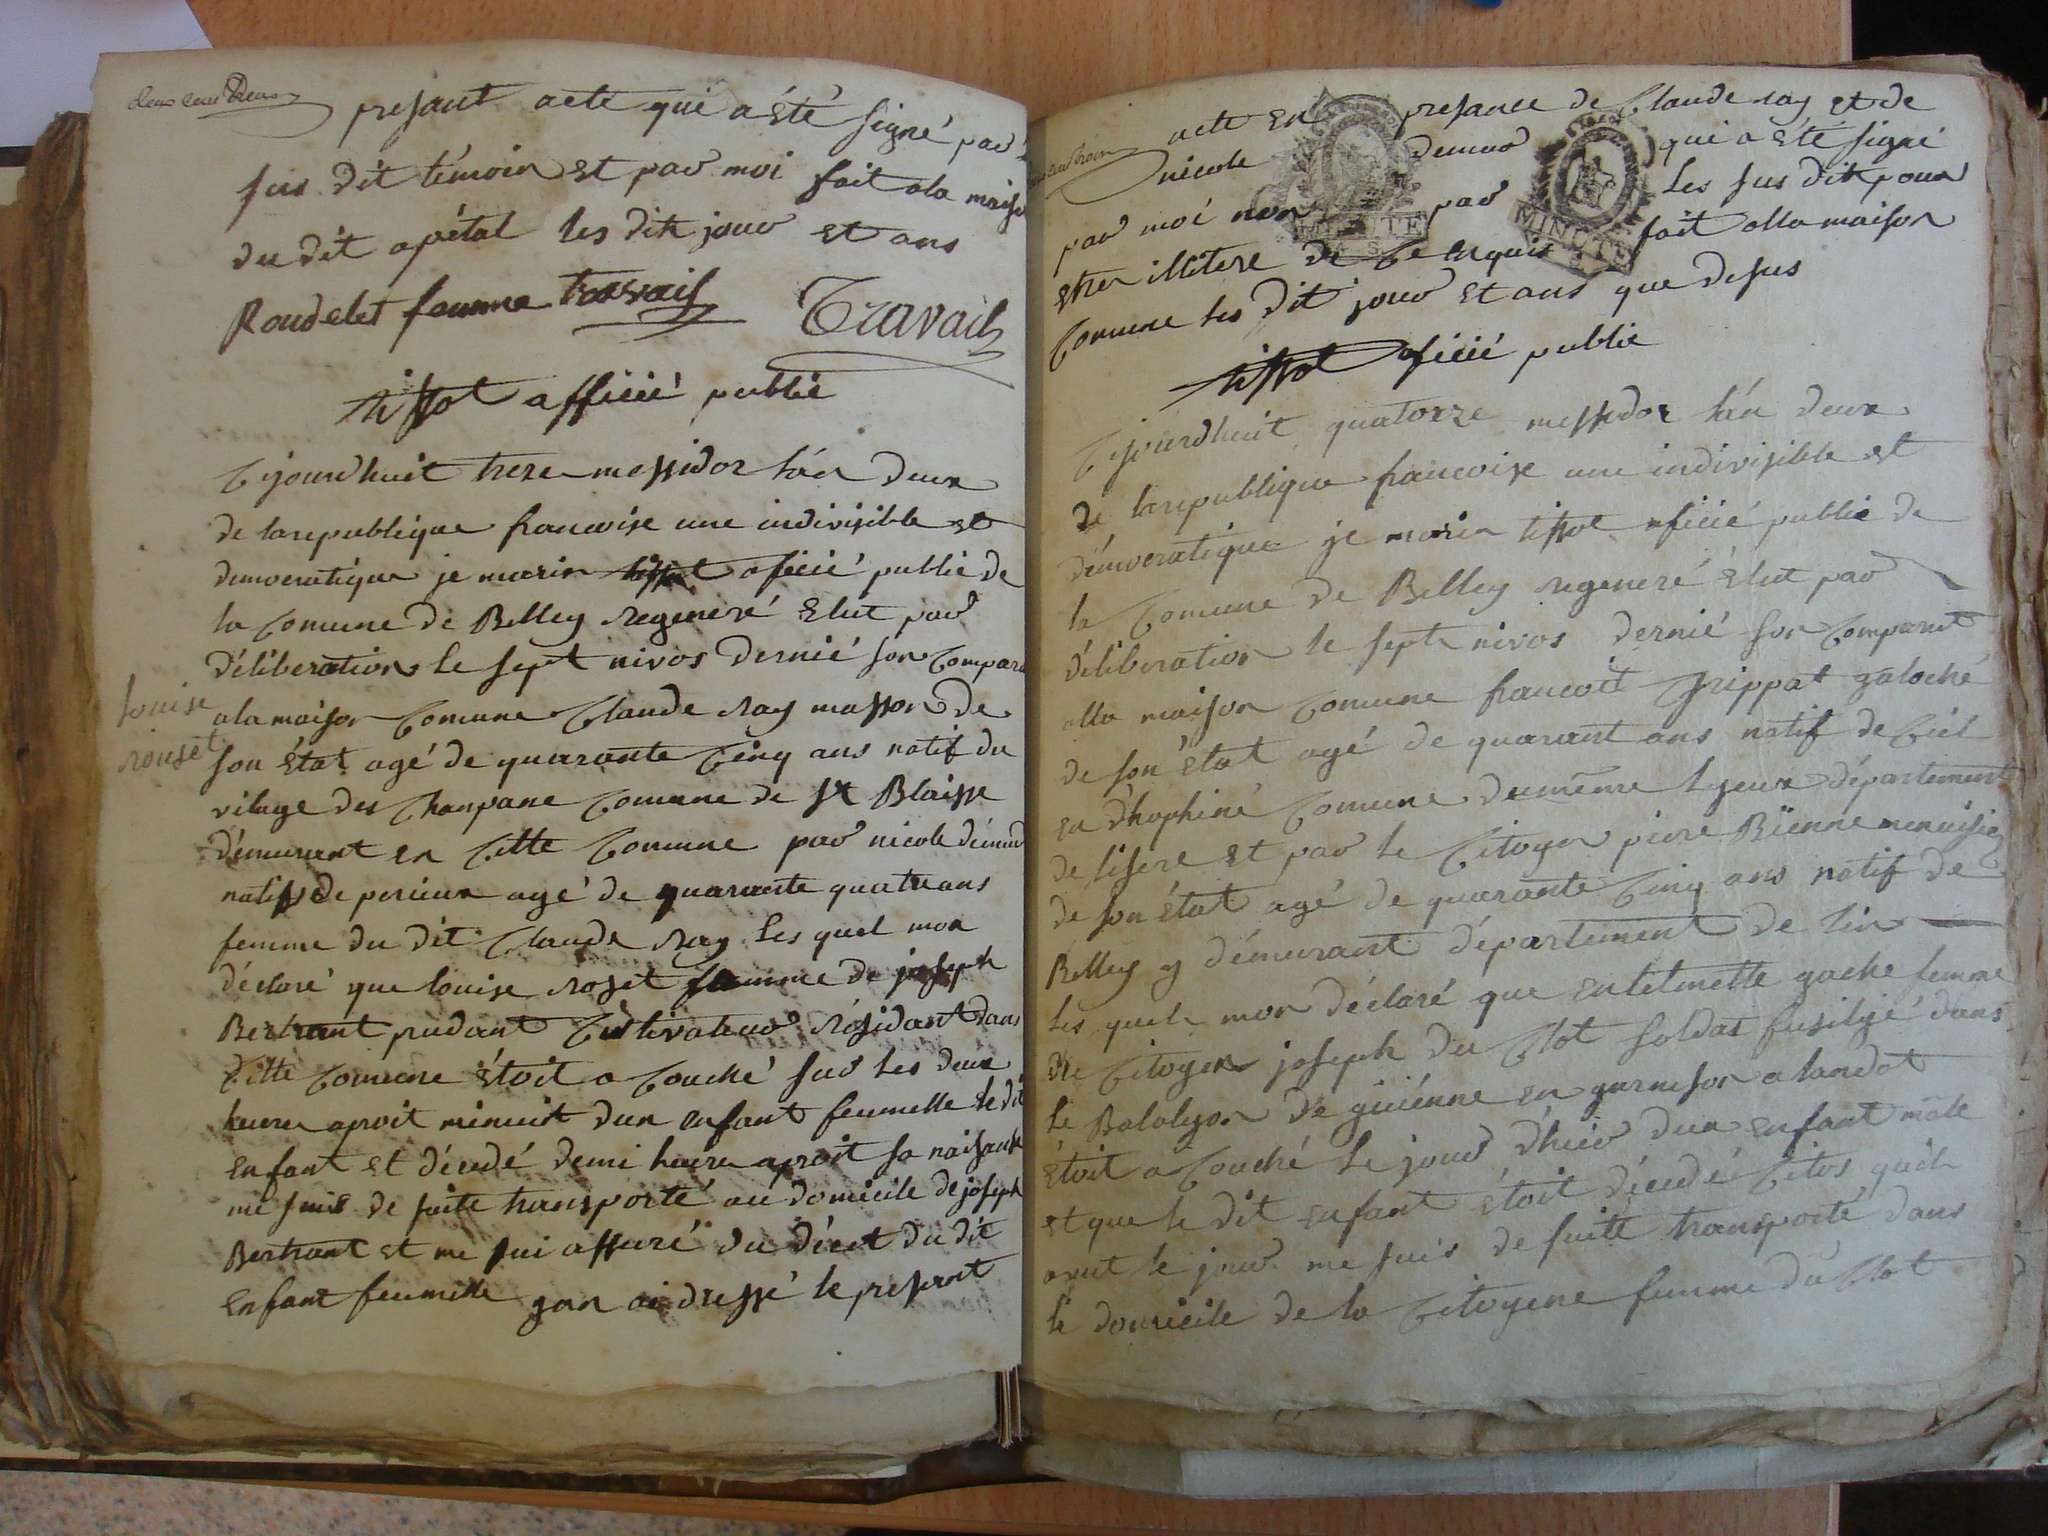 deux cent deux
presant acte qui a été signé par
sus dit témoin et par moi fait a la maison
du dit opétal les dit jour et ans
Roudelet femme Travail Travail
tissot officié public
C'ejourdhuit treze messidor l'án deux
de la republique francoise une indivisible et
democratique je marin tissot oficié public de
la Comune de Belley regeneré Elut par
déliberation le sept nivos dernié son Compart
louise
rouset
a la maison Comune Claude ray masson de
son état agé de quarante Cinq ans natif du
vilage des Chanpane Comune de St Blaisse
démurant en Cette Comune par nicole démur
natifs de perieux agé de quarante quatre ans
femme du dit Claude ray Les quel mon
déclaré que louise roset famme de joseph
Bertrant pudant Cultivateur résidant dans
Cette Comune étoit a Couché sur les deux
heure aproit minuit dun enfant feumelle le dit
enfant et décédé demi heure aproit sa naisanse
me suis de suite transporté au domicile de joseph
Bertrant et me sui assuré du décet du dit
enfant feumelle jan ai dressé le presant
acte en presance de Claude ray et de
nicole demur qui a été signé
par moi non par les sus dit pour
etre illitere de Ce enquis fait alla maison
Comune les dit jour et ans que desus
tissot oficié public
C'ejourdhuit quatorze messidor l'án deux
de la republique francoise une indivisible et
démocratique je marin tissot oficié public de
la Comune de Belley regeneré élut par
déliberation le sept nivos dernié son Comparut
alla maison Comune francoit Grippat galoché
de son état agé de quarant ans natif de Ciel
en dhophiné Comune du même Lyeux département
de lisere et par le Citoyen piere Bienne menuisié
de son état agé de quarante Cinq ans natif de
Belley y démurant département de lin
les quels mon déclaré que entelmette gache femme
du Citoyen joseph du Clot soldat fusiligé dans
le Batalyon de guiénne en garnison a landot
étoit a Couché le jour dhier dun enfant mâle
et que le dit enfant étoit décédé Citos quil
a vut le jour me suis de suitte transporté dans
le domicile de la Citoyene femme du Clot
MINUTE
MINUTE